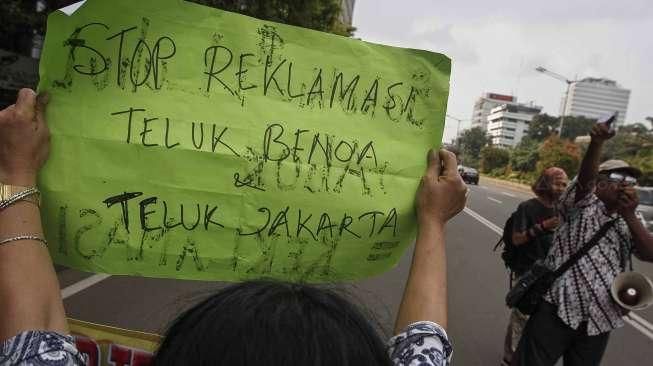 STOP REKLAMASI
TELUK BENOA
&
TELUK JAKARTA